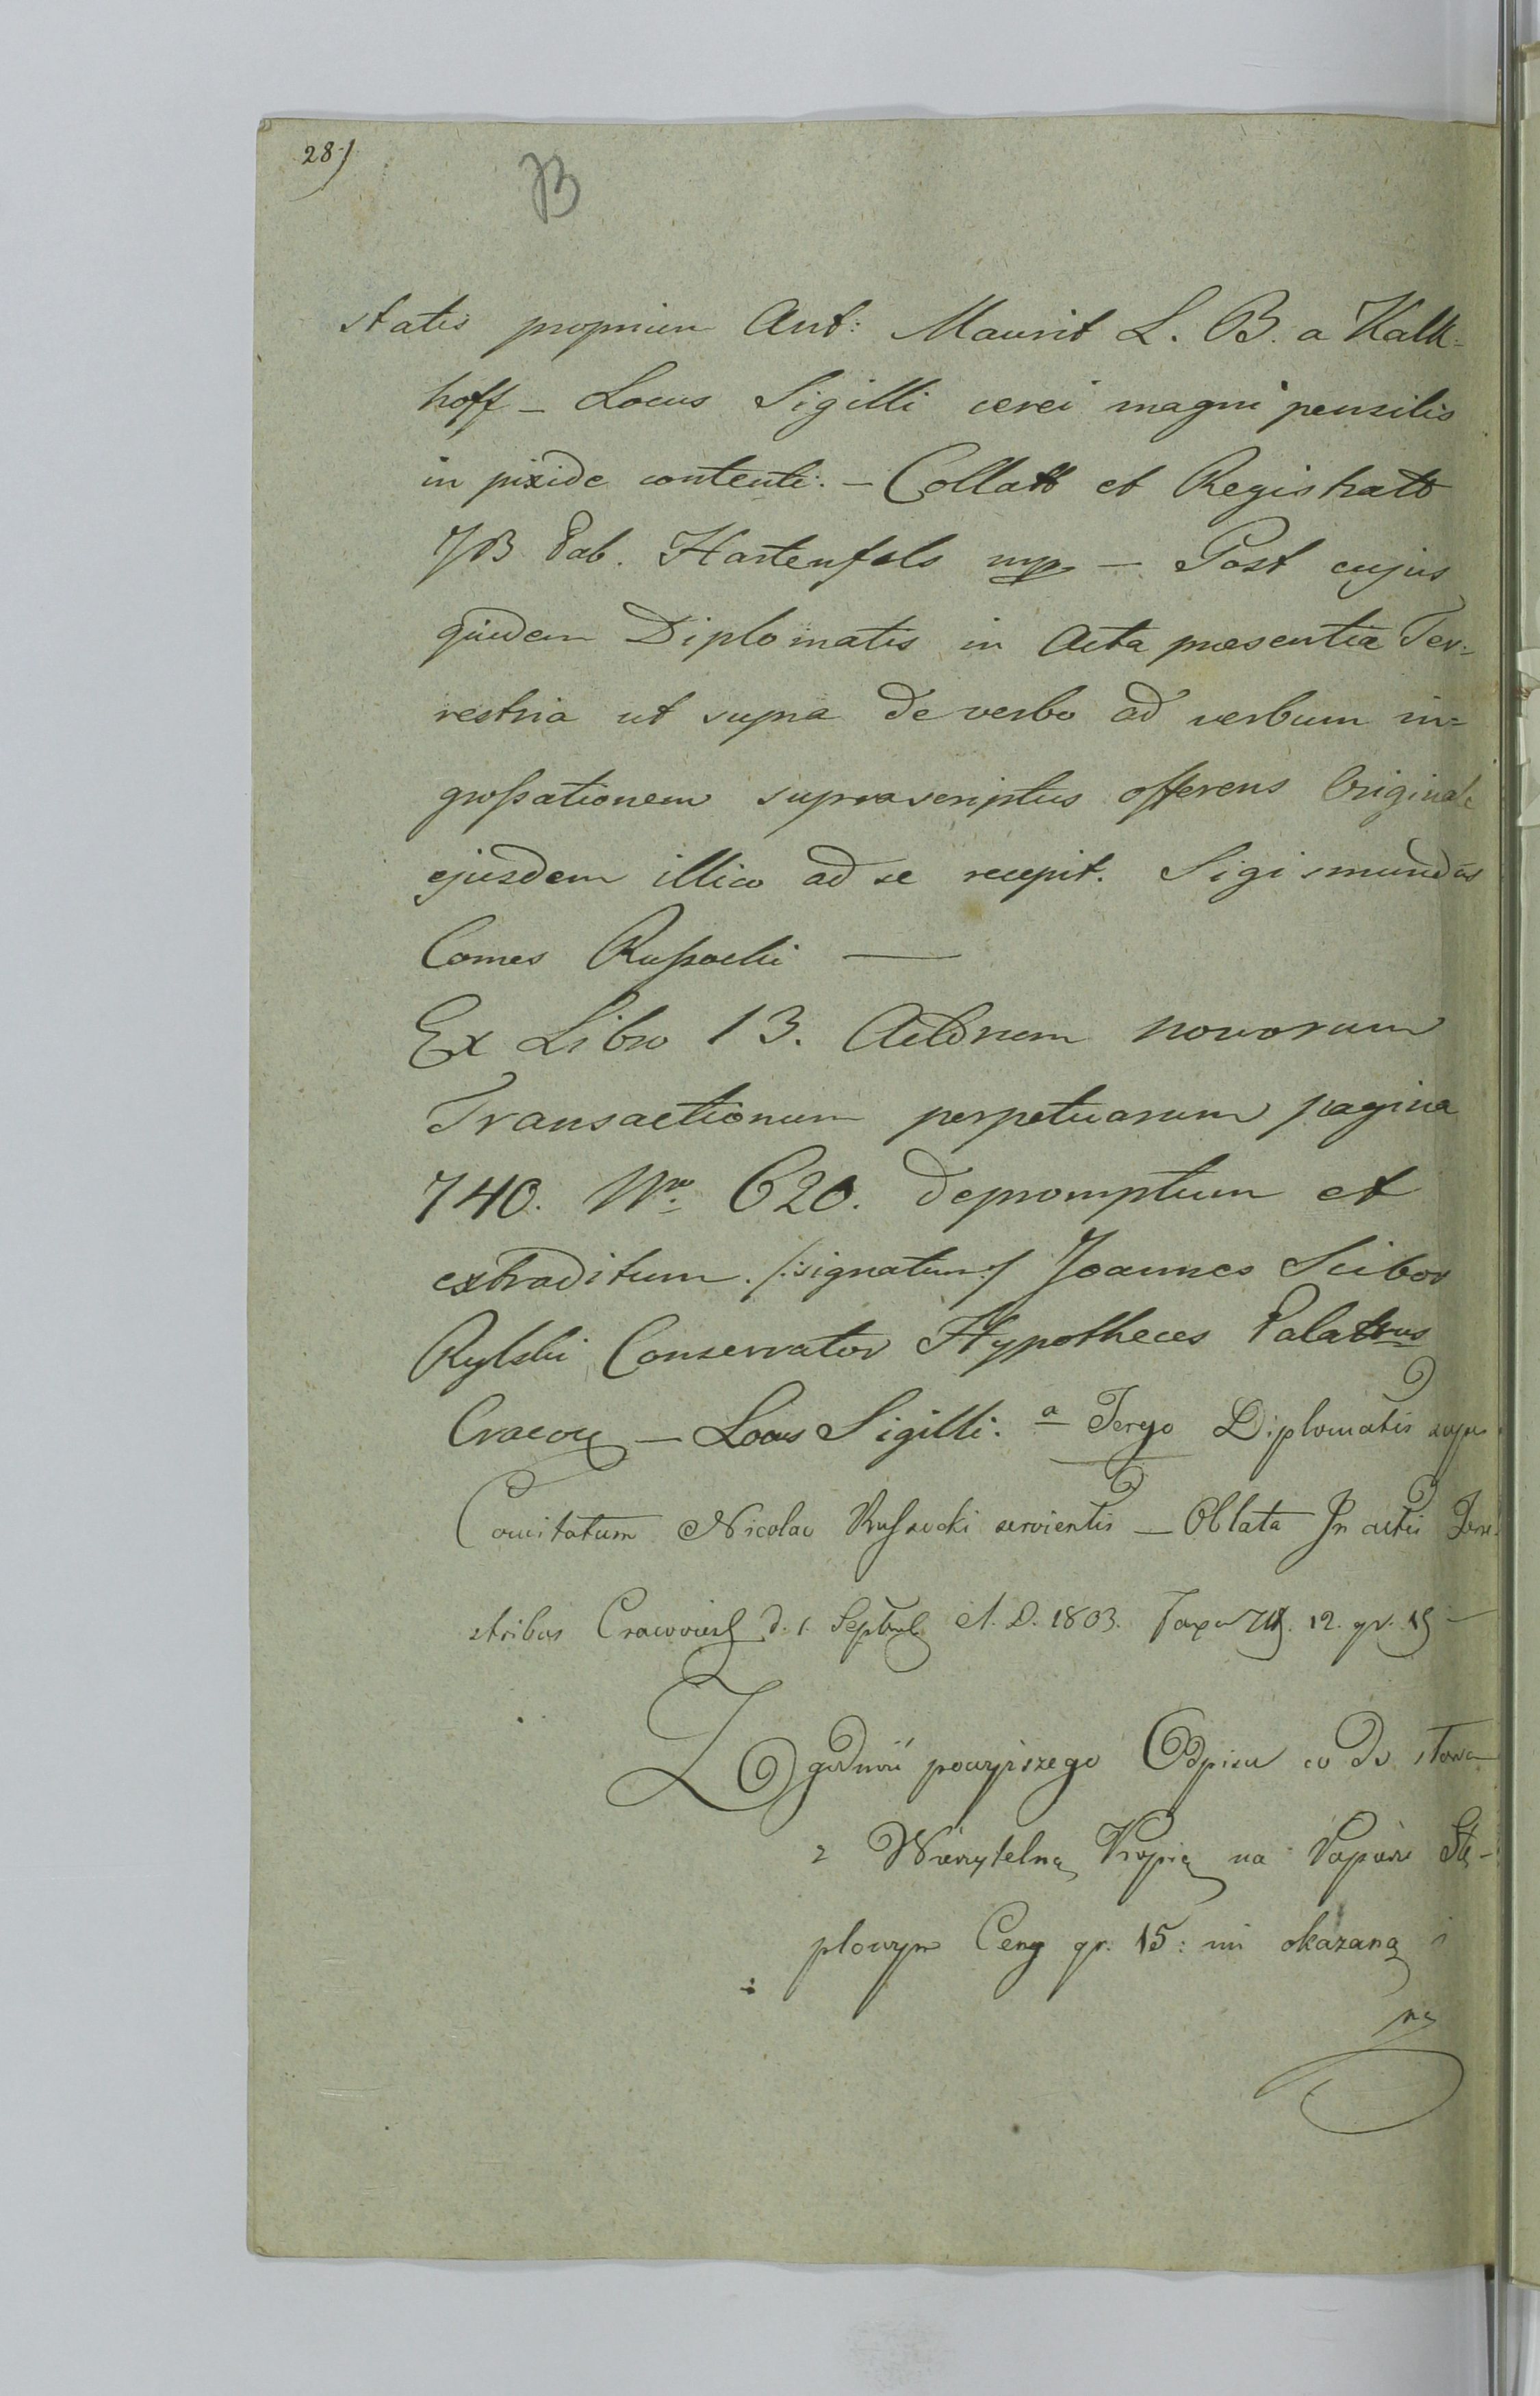 28.)
B
statis proprium Ant: Maurit L. B. a Kalk-
hoff – Locus Sigilli cerei magni pensilis
in pixide contenti. – Collatt et Registratt
JB Pab. Hartenfels mp – Post cujus
quidem Diplomatis in Acta præsentia Ter-
restria ut supra de verbo ad verbum in=
großationem suprascriptus offerens Originale
ejusdem illico ad se recepit. Sigismundus
Comes Rußocki —
Ex Libro 13. Actorum novorum
Transactionum perpetuarum pagina
740. Nro 620. depromptum et
extraditum. /:signatum:/ Joannes Scibor
Rylski Conservator Hypotheces Palattus
Cracov – Locus Sigilli. a Tergo Diplomatis super
Comitatum Nicolao Rußocki servientis – Oblata In actis Terre-
stribus Cracovien d. 1. Septembr A. D. 1803. Taxa 12. gr. 15 –
Zgodność powyższego Odpisu co do słowa
z Wierzytelną Kopią na Papierze Stę-
plowym Ceny gr. 15: mi okazaną i
na